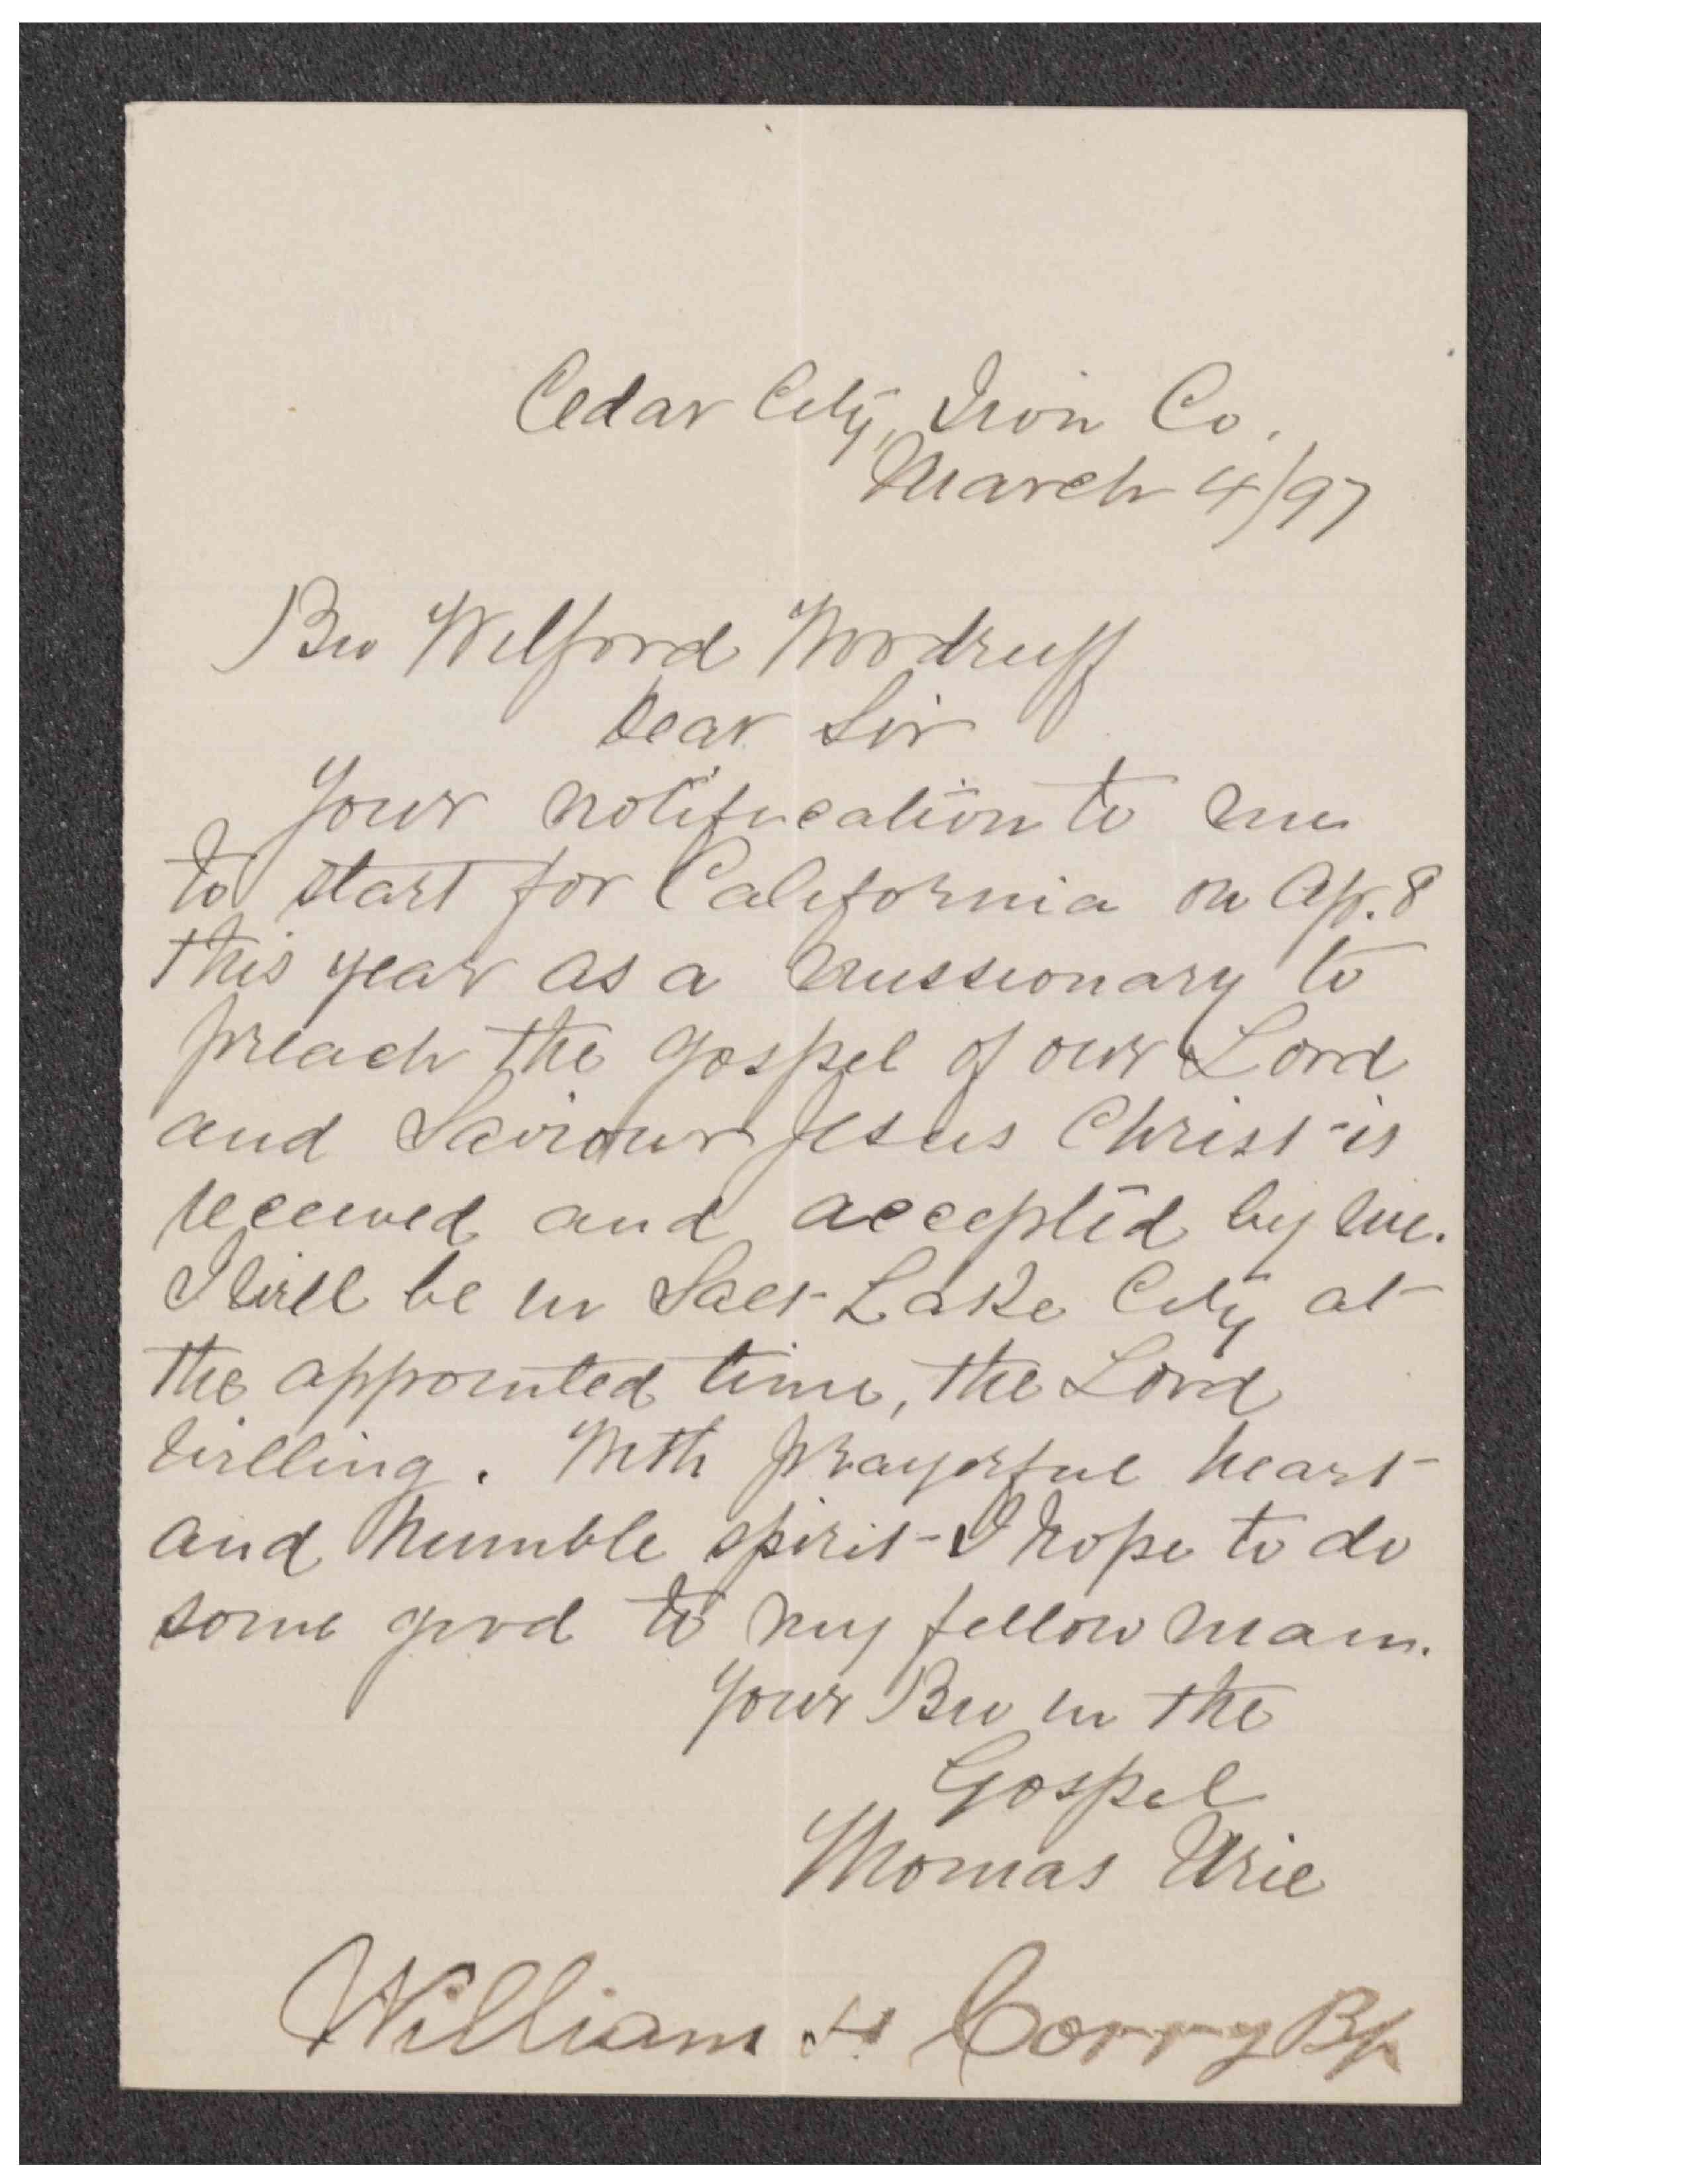 Cedar City, Iron Co.
March 4/97
Bro Wilford Woodruff
Dear Sir
Your notification to me
to start for California on Ap. 8
this year as a missionary to
preach the gospel of our Lord
and Saviour Jesus Christ is
received and accepted by me.
I will be in Salt Lake City at
the appointed time, the Lord
willing. With prayerful heart
and humble spirit I hope to do
some good to my fellow man.
Your Bro in the
Gospel
Thomas Urie
William H Corry Bp